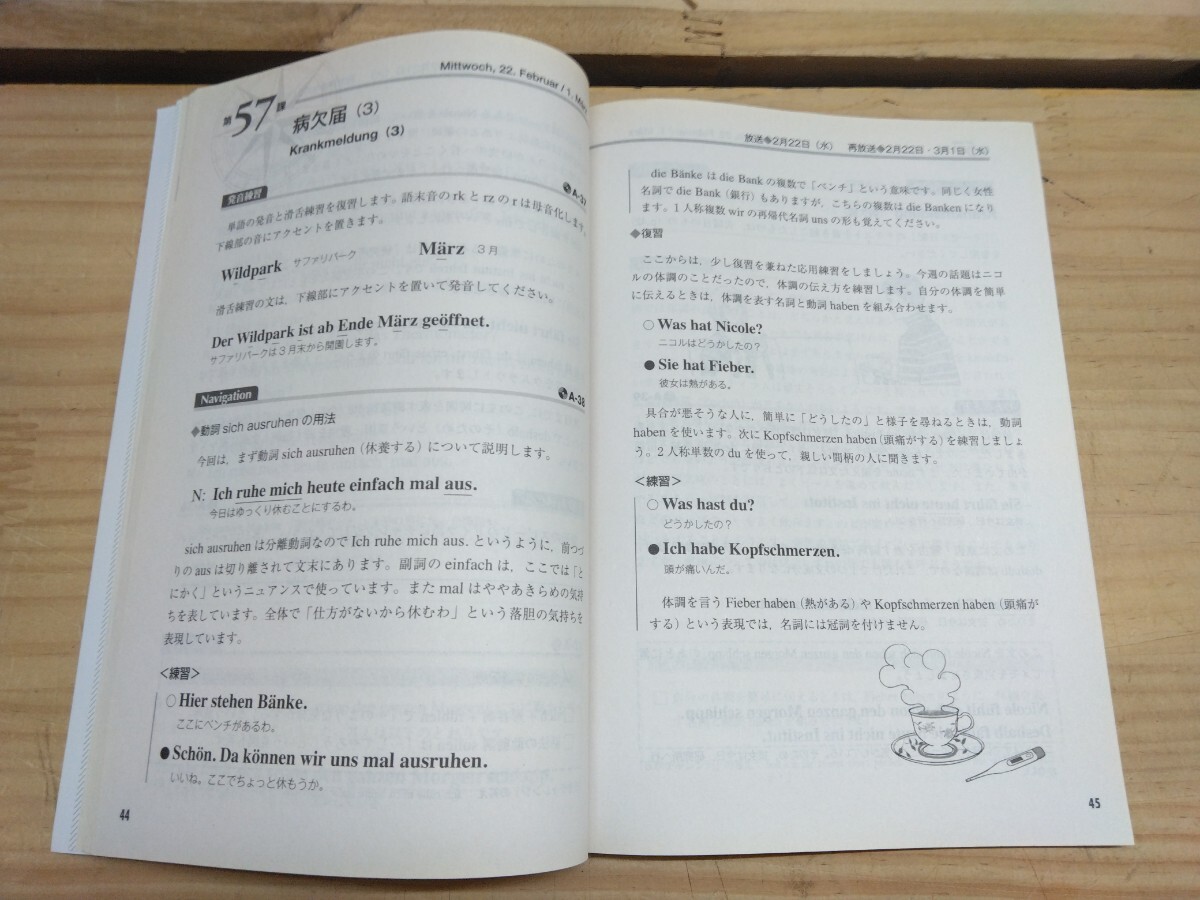 Mittwoch, 22. Februar / 1. März
第57課 病欠届（3）
Krankmeldung（3）
発音練習
A-37
単語の発音と滑舌練習を復習します。語末音のrkとrzのrは母音化します。
下線部の音にアクセントを置きます。
Wildpark サファリパーク März 3月
滑舌練習の文は、下線部にアクセントを置いて発音してください。
Der Wildpark ist ab Ende März geöffnet.
サファリパークは3月末から開園します。
Navigation
A-38
◆動詞 sich ausruhen の用法
今回は、まず動詞 sich ausruhen（休養する）について説明します。
N: Ich ruhe mich heute einfach mal aus.
今日はゆっくり休むことにするわ。
sich ausruhen は分離動詞なので Ich ruhe mich aus. というように、前つづ
りの aus は切り離されて文末にあります。副詞の einfach は、ここでは「と
にかく」というニュアンスで使っています。また mal はややあきらめの気持
ちを表しています。全体で「仕方がないから休むわ」という落胆の気持ちを
表現しています。
＜練習＞
○ Hier stehen Bänke.
ここにベンチがあるわ。
● Schön. Da können wir uns mal ausruhen.
いいね。ここでちょっと休もうか。
44
放送◆2月22日（水） 再放送◆2月22日・3月1日（水）
die Bänke は die Bank の複数で「ベンチ」という意味です。同じく女性
名詞で die Bank（銀行）もありますが、こちらの複数は die Banken になり
ます。1人称複数 wir の再帰代名詞 uns の形も覚えてください。
◆復習
ここからは、少し復習を兼ねた応用練習をしましょう。今週の話題はニコ
ルの体調のことだったので、体調の伝え方を練習します。自分の体調を簡単
に伝えるときは、体調を表す名詞と動詞 haben を組み合わせます。
○ Was hat Nicole?
ニコルはどうかしたの？
● Sie hat Fieber.
彼女は熱がある。
具合が悪そうな人に、簡単に「どうしたの」と様子を尋ねるときは、動詞
haben を使います。次に Kopfschmerzen haben（頭痛がする）を練習しましょ
う。2人称単数の du を使って、親しい間柄の人に聞きます。
＜練習＞
○ Was hast du?
どうかしたの？
● Ich habe Kopfschmerzen.
頭が痛いんだ。
体調を言う Fieber haben（熱がある）や Kopfschmerzen haben（頭痛が
する）という表現では、名詞には冠詞を付けません。
45